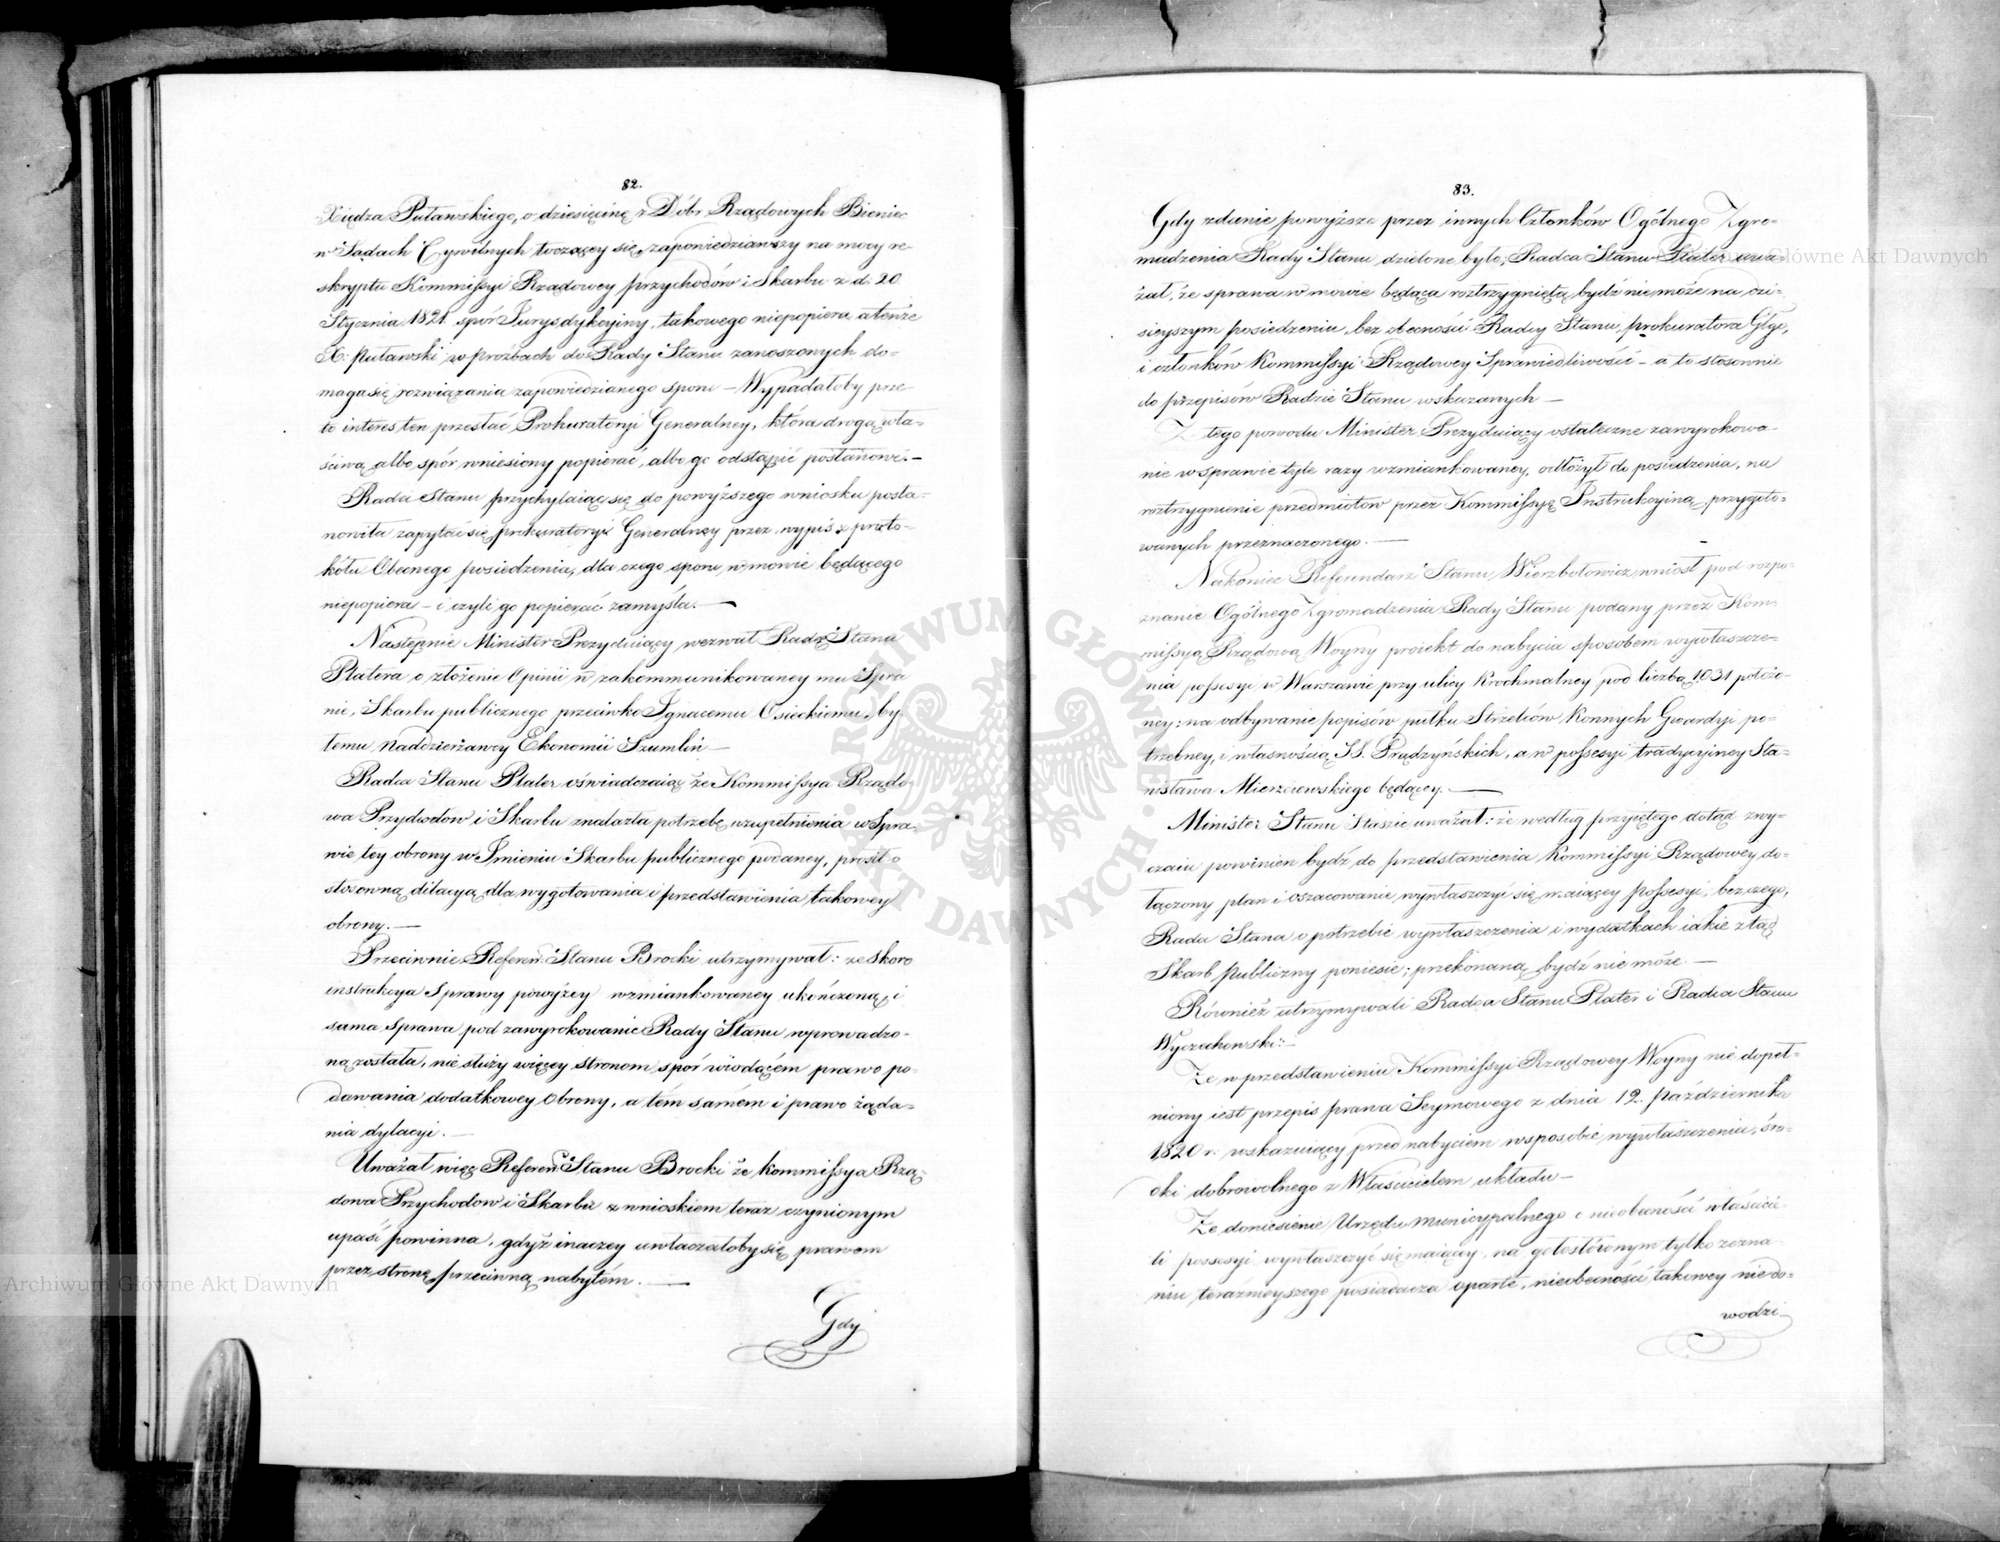 82.
Xiędza Puławskiego, o dziesięcinę z Dóbr Rządowych Bieniec
w Sądach Cywilnych toczącey się, zapowiedziawszy na mocy re-
skryptu Kommissyi Rządowey Przychodów i Skarbu z d: 20.
Stycznia 1821. spór Jurysdykcyiny, takowego niepopiera a tenże
X: Puławski w proźbach do Rady Stanu zanoszonych do-
maga się rozwiązania zapowiedzianego sporu – Wypadałoby prze-
to interes ten przesłać Prokuratoryi Generalney, która drogą wła-
ściwą albo spór wniesiony popierać, albo go odstąpić postanowi. –
Rada Stanu przychylaiąc się do powyższego wniosku posta-
nowiła zapytać się prokuratoryi Generalney przez wypis z proto-
kółu Obecnego posiedzenia, dla czego sporu w mowie będącego
niepopiera – i czyli go popierać zamyśla. –
Następnie Minister Prezyduiący wezwał Radzcę Stanu
Platera o złożenie Opinii w zakommunikowaney mu Spra
wie, Skarbu publicznego przeciwko Ignacemu Osieckiemu, by-
łemu Naddzierżawcy Ekonomii Szumlin –
Radca Stanu Plater oświadczaiąc że Kommissya Rządo-
wa Przychodów i Skarbu znalazła potrzebę uzupełnienia w Spra-
wie tey obrony w Imieniu Skarbu publicznego podaney, prosił o
stosowną dilacyą dla wygotowania i przedstawienia takowey
obrony. –
Przeciwnie Referen: Stanu Brocki utrzymywał: ze skoro
instrukcya Sprawy powyżey wzmiankowaney ukończoną, i
sama Sprawa pod zawyrokowanie Rady Stanu wprowadzo-
ną została, nie służy więcey stronom spór wiodącém prawo po-
dawania dodatkowey Obrony, a tém samém i prawo żąda-
nia dylacyi. –
Uważał więc Referen: Stanu Brocki że Kommissya Rzą-
dowa Przychodow i Skarbu z wnioskiem teraz czynionym
upaść powinna, gdyż inaczey uwłaczałoby się prawom
przez stronę przeciwną nabytém. –
Gdy
83.
Gdy zdanie powyższe przez innych Członków Ogólnego Zgro-
madzenia Rady Stanu dzielone było; Radca Stanu Plater uwa-
żał, że sprawa w mowie będąca roztrzygniętą bydź nie może na dzi-
sieyszym posiedzeniu, bez obecności Radcy Stanu, prokuratora Glgo,
i członków Kommissyi Rządowey Sprawiedliwości – a to stosownie
do przepisów Radzie Stanu wskazanych –
Z tego powodu Minister Prezyduiący ostateczne zawyrokowa-
nie w sprawie tyle razy wzmiankowaney, odłożył do posiedzenia, na
roztrzygnienie przedmiotów przez Kommissyę Instrukcyiną przygoto-
wanych przeznaczonego. –
Nakoniec Referendarz Stanu Wierzbołowicz wniósł pod rozpo-
znanie Ogólnego Zgromadzenia Rady Stanu podany przez Kom-
missyą Rządową Woyny proiekt do nabycia sposobem wywłaszcze-
nia possesyi w Warszawie przy ulicy Krochmalney pod liczbą 1031 położo-
ney; na odbywanie popisów pułku Strzelców Konnych Gwardyi po-
trzebney, i własnością SS. Prądzyńskich, a w possesyi tradycyiney Sta-
nisława Mierzeiewskiego będącey. –
Minister Stanu Staszic uważał: że według przyiętego dotąd zwy-
czaiu powinien bydź do przedstawienia Kommissyi Rządowey do-
łączony plan i oszacowanie wywłaszczyć się maiącey possesyi, bez czego,
Rada Stanu o potrzebie wywłaszczenia i wydatkach iakie ztąd
Skarb publiczny poniesie; przekonaną bydź nie może. –
Również utrzymywali Radca Stanu Plater i Radca Stanu
Wyczechowski: –
Ze w przedstawieniu Kommissyi Rządowey Woyny nie dopeł-
niony iest przepis prawa Seymowego z dnia 12. Października
1820 r. wskazuiący przed nabyciem w sposobie wywłaszczenia, śro-
dki dobrowolnego z Właścicielem układu –
Ze doniesienie Urzędu Municypalnego o nieobecności właścicie-
li possesyi wywłaszczyć się maiącey, na gołosłównym tylko zezna-
niu teraźnieyszego posiadacza oparte, nieobecności takowey nie do-
wodzi